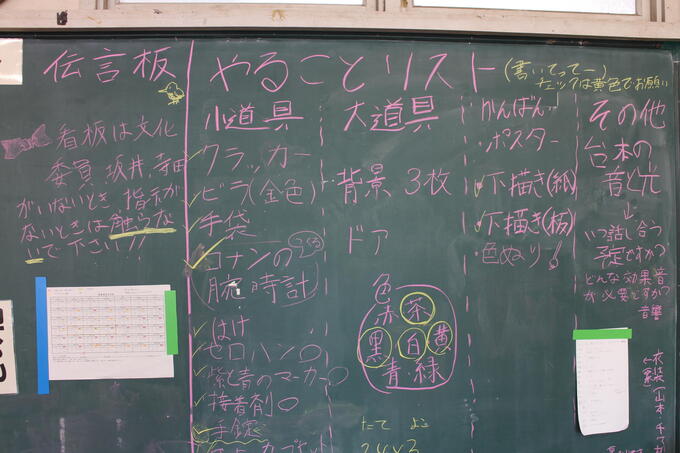 伝言板
看板は文化
委員、坂井、寺田
がいないとき、指示が
ないときは触らな
いで下さい!!
やることリスト
(書いてってー)
チェックは黄色でお願い
小道具
クラッカー
ビラ(金色)
手袋
コナンの
つくる
腕時計
はけ
セロハン○
紫と青のマーカー○
接着剤○
手錠
大道具
背景 3枚
ドア
色
赤 茶
黒 白 黄
青 緑
たて よこ
かんばん
ポスター
下描き(紙)
下描き(板)
色ぬり
その他
台本の
音と光
↓
いつ話し合う
予定ですか?
どんな効果音
が必要ですか?
音響